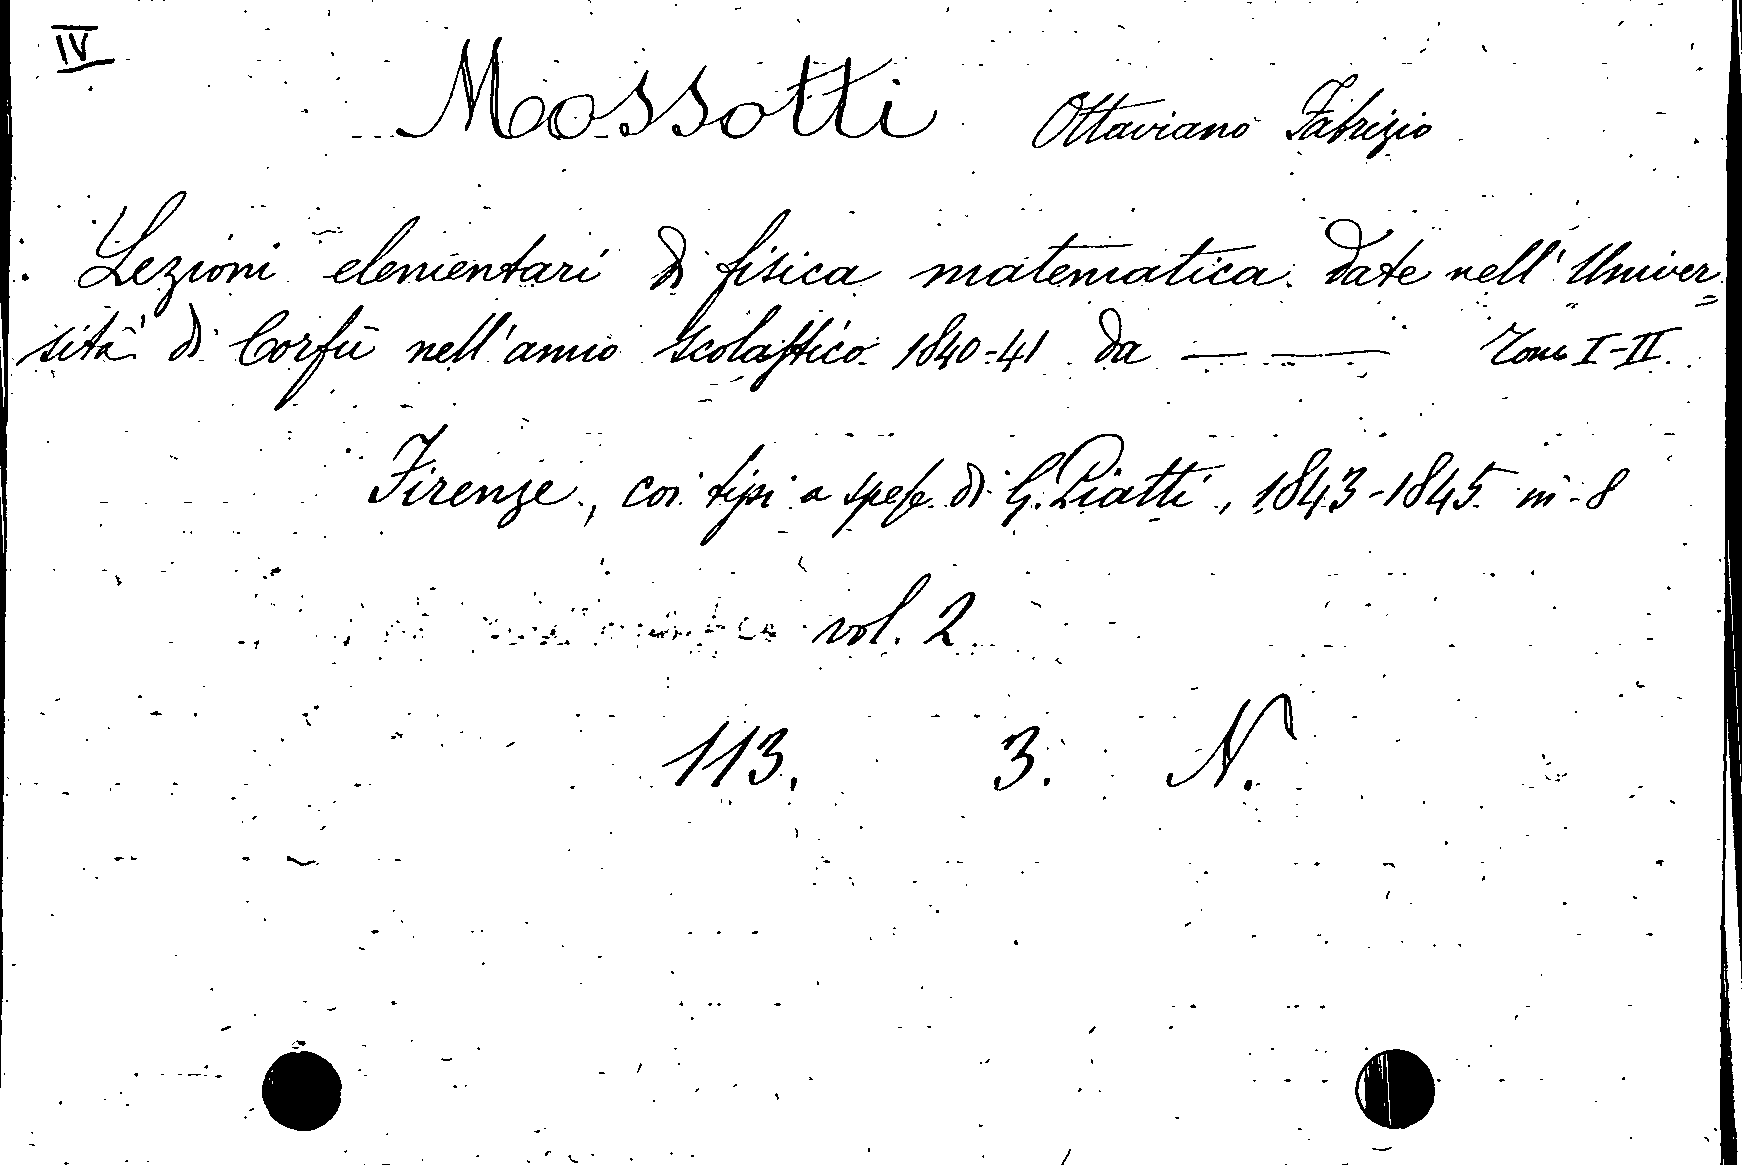 IV
Mossotti Ottaviano Fabrizio
Lezioni elementari di fisica matematica date nell'Univer=
sità di Corfù nell'anno scolastico 1840-41 da — — Tomo I-II.
Firenze, coi tipi a spese di G. Piatti, 1843-1845 in-8
vol. 2
113. 3. N.